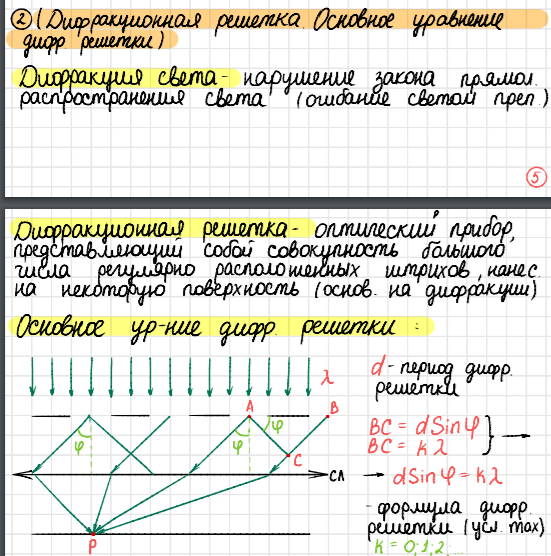 ② (Дифракционная решетка. Основное уравнение
дифр решетки)
Дифракция света - нарушение закона прямол.
распространения света (огибание светом преп.)
5
Дифракционная решетка - оптический прибор,
представляющий собой совокупность большого
числа регулярно расположенных штрихов, нанес.
на некоторую поверхность (основ. на дифракции)
Основное ур-ние дифр. решетки :
λ
d - период дифр.
решетки
A
B
φ
φ
φ
C
BC = d Sin φ
BC = k λ
СЛ
d Sin φ = k λ
- формула дифр.
решетки (усл. max)
P
k = 0; 1; 2..